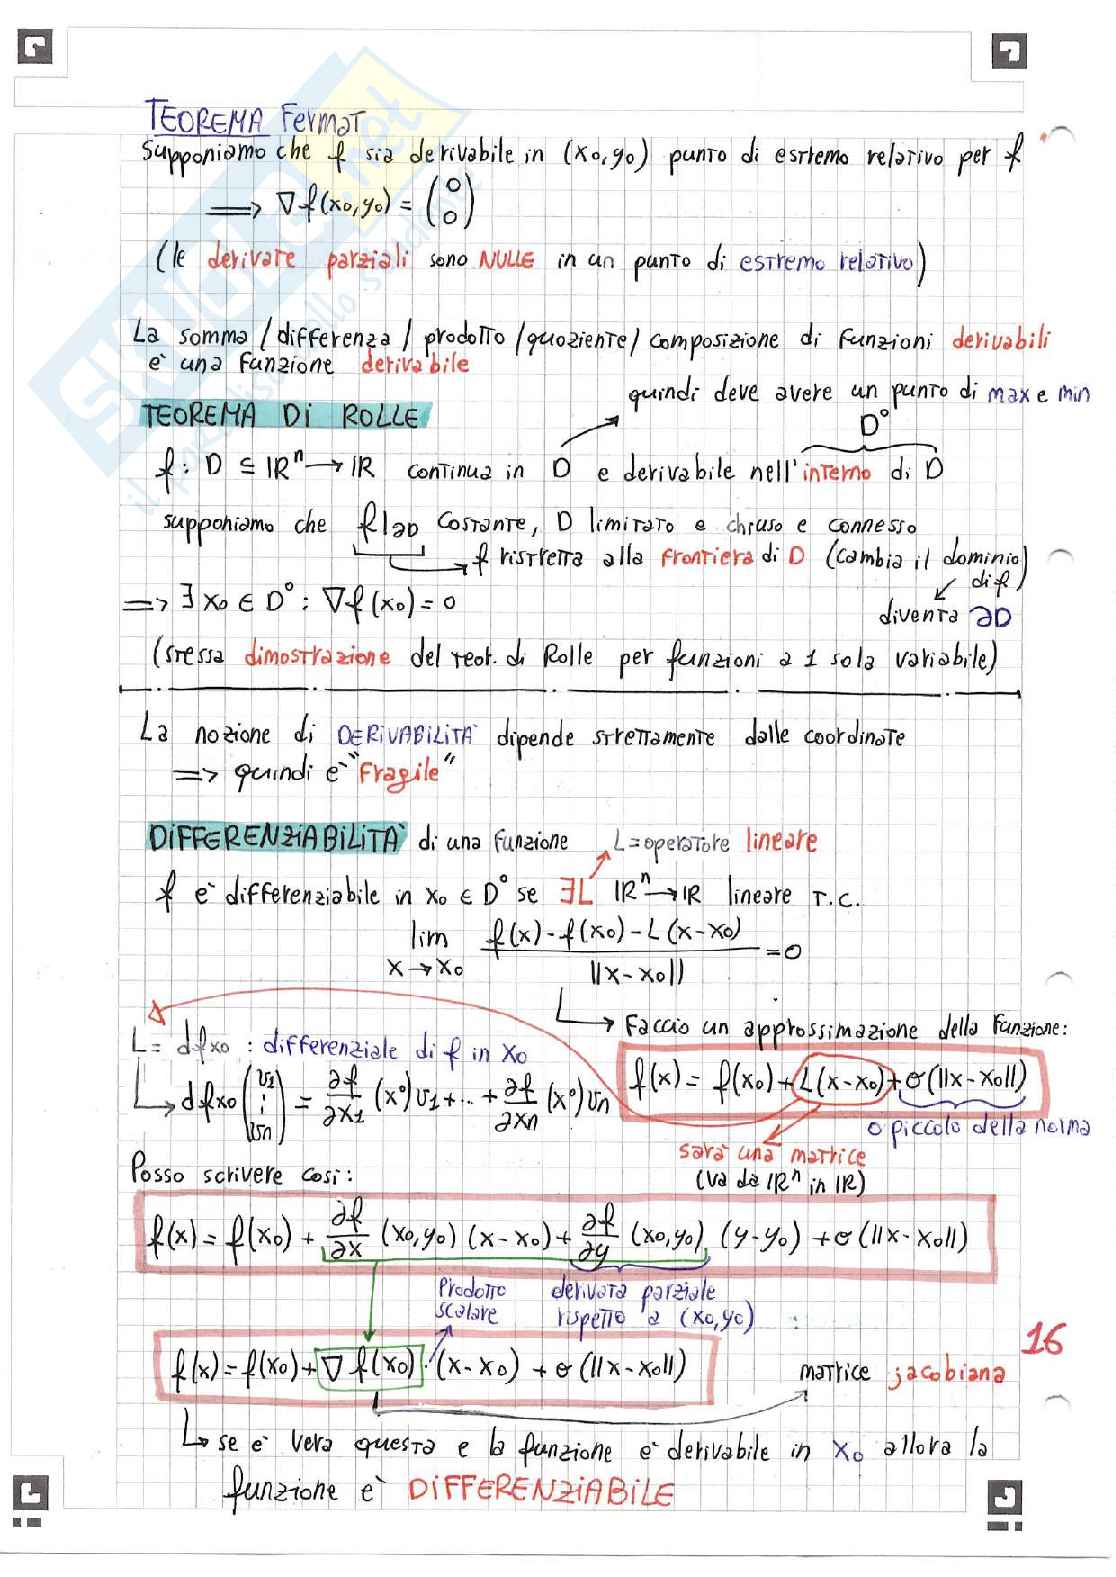 TEOREMA Fermat
Supponiamo che f sia derivabile in (x0,y0) punto di estremo relativo per f
=> ∇f(x0,y0) = (0 0)
(le derivate parziali sono NULLE in un punto di estremo relativo)
La somma / differenza / prodotto / quoziente / composizione di funzioni derivabili
è una funzione derivabile
quindi deve avere un punto di max e min
TEOREMA DI ROLLE
D°
f: D ⊆ IRⁿ → IR continua in D e derivabile nell'interno di D
supponiamo che f|∂D costante, D limitato e chiuso e connesso
f ristretta alla frontiera di D (cambia il dominio di f)
diventa ∂D
=> ∃ x0 ∈ D° : ∇f(x0) = 0
(stessa dimostrazione del teor. di Rolle per funzioni a 1 sola variabile)
La nozione di DERIVABILITÀ dipende strettamente dalle coordinate
=> quindi è "Fragile"
DIFFERENZIABILITÀ di una funzione
L = operatore lineare
f è differenziabile in x0 ∈ D° se ∃L IRⁿ → IR lineare t.c.
lim x→x0 f(x) - f(x0) - L(x-x0) / ||x-x0|| = 0
Faccio un approssimazione della funzione:
L = dfx0 : differenziale di f in x0
f(x) = f(x0) + L(x-x0) + o(||x-x0||)
dfx0 (v1 ⋮ vn) = ∂f/∂x1 (x°)v1 + .. + ∂f/∂xn (x°)vn
o piccolo della norma
sarà una matrice
(va da IRⁿ in IR)
Posso scrivere così:
f(x) = f(x0) + ∂f/∂x (x0,y0) (x-x0) + ∂f/∂y (x0,y0) (y-y0) + o(||x-x0||)
prodotto scalare
derivata parziale rispetto a (x0,y0)
f(x) = f(x0) + ∇f(x0) · (x-x0) + o(||x-x0||)
16
matrice jacobiana
se è vera questa e la funzione è derivabile in x0 allora la
funzione è DIFFERENZIABILE
SKUOLA.net